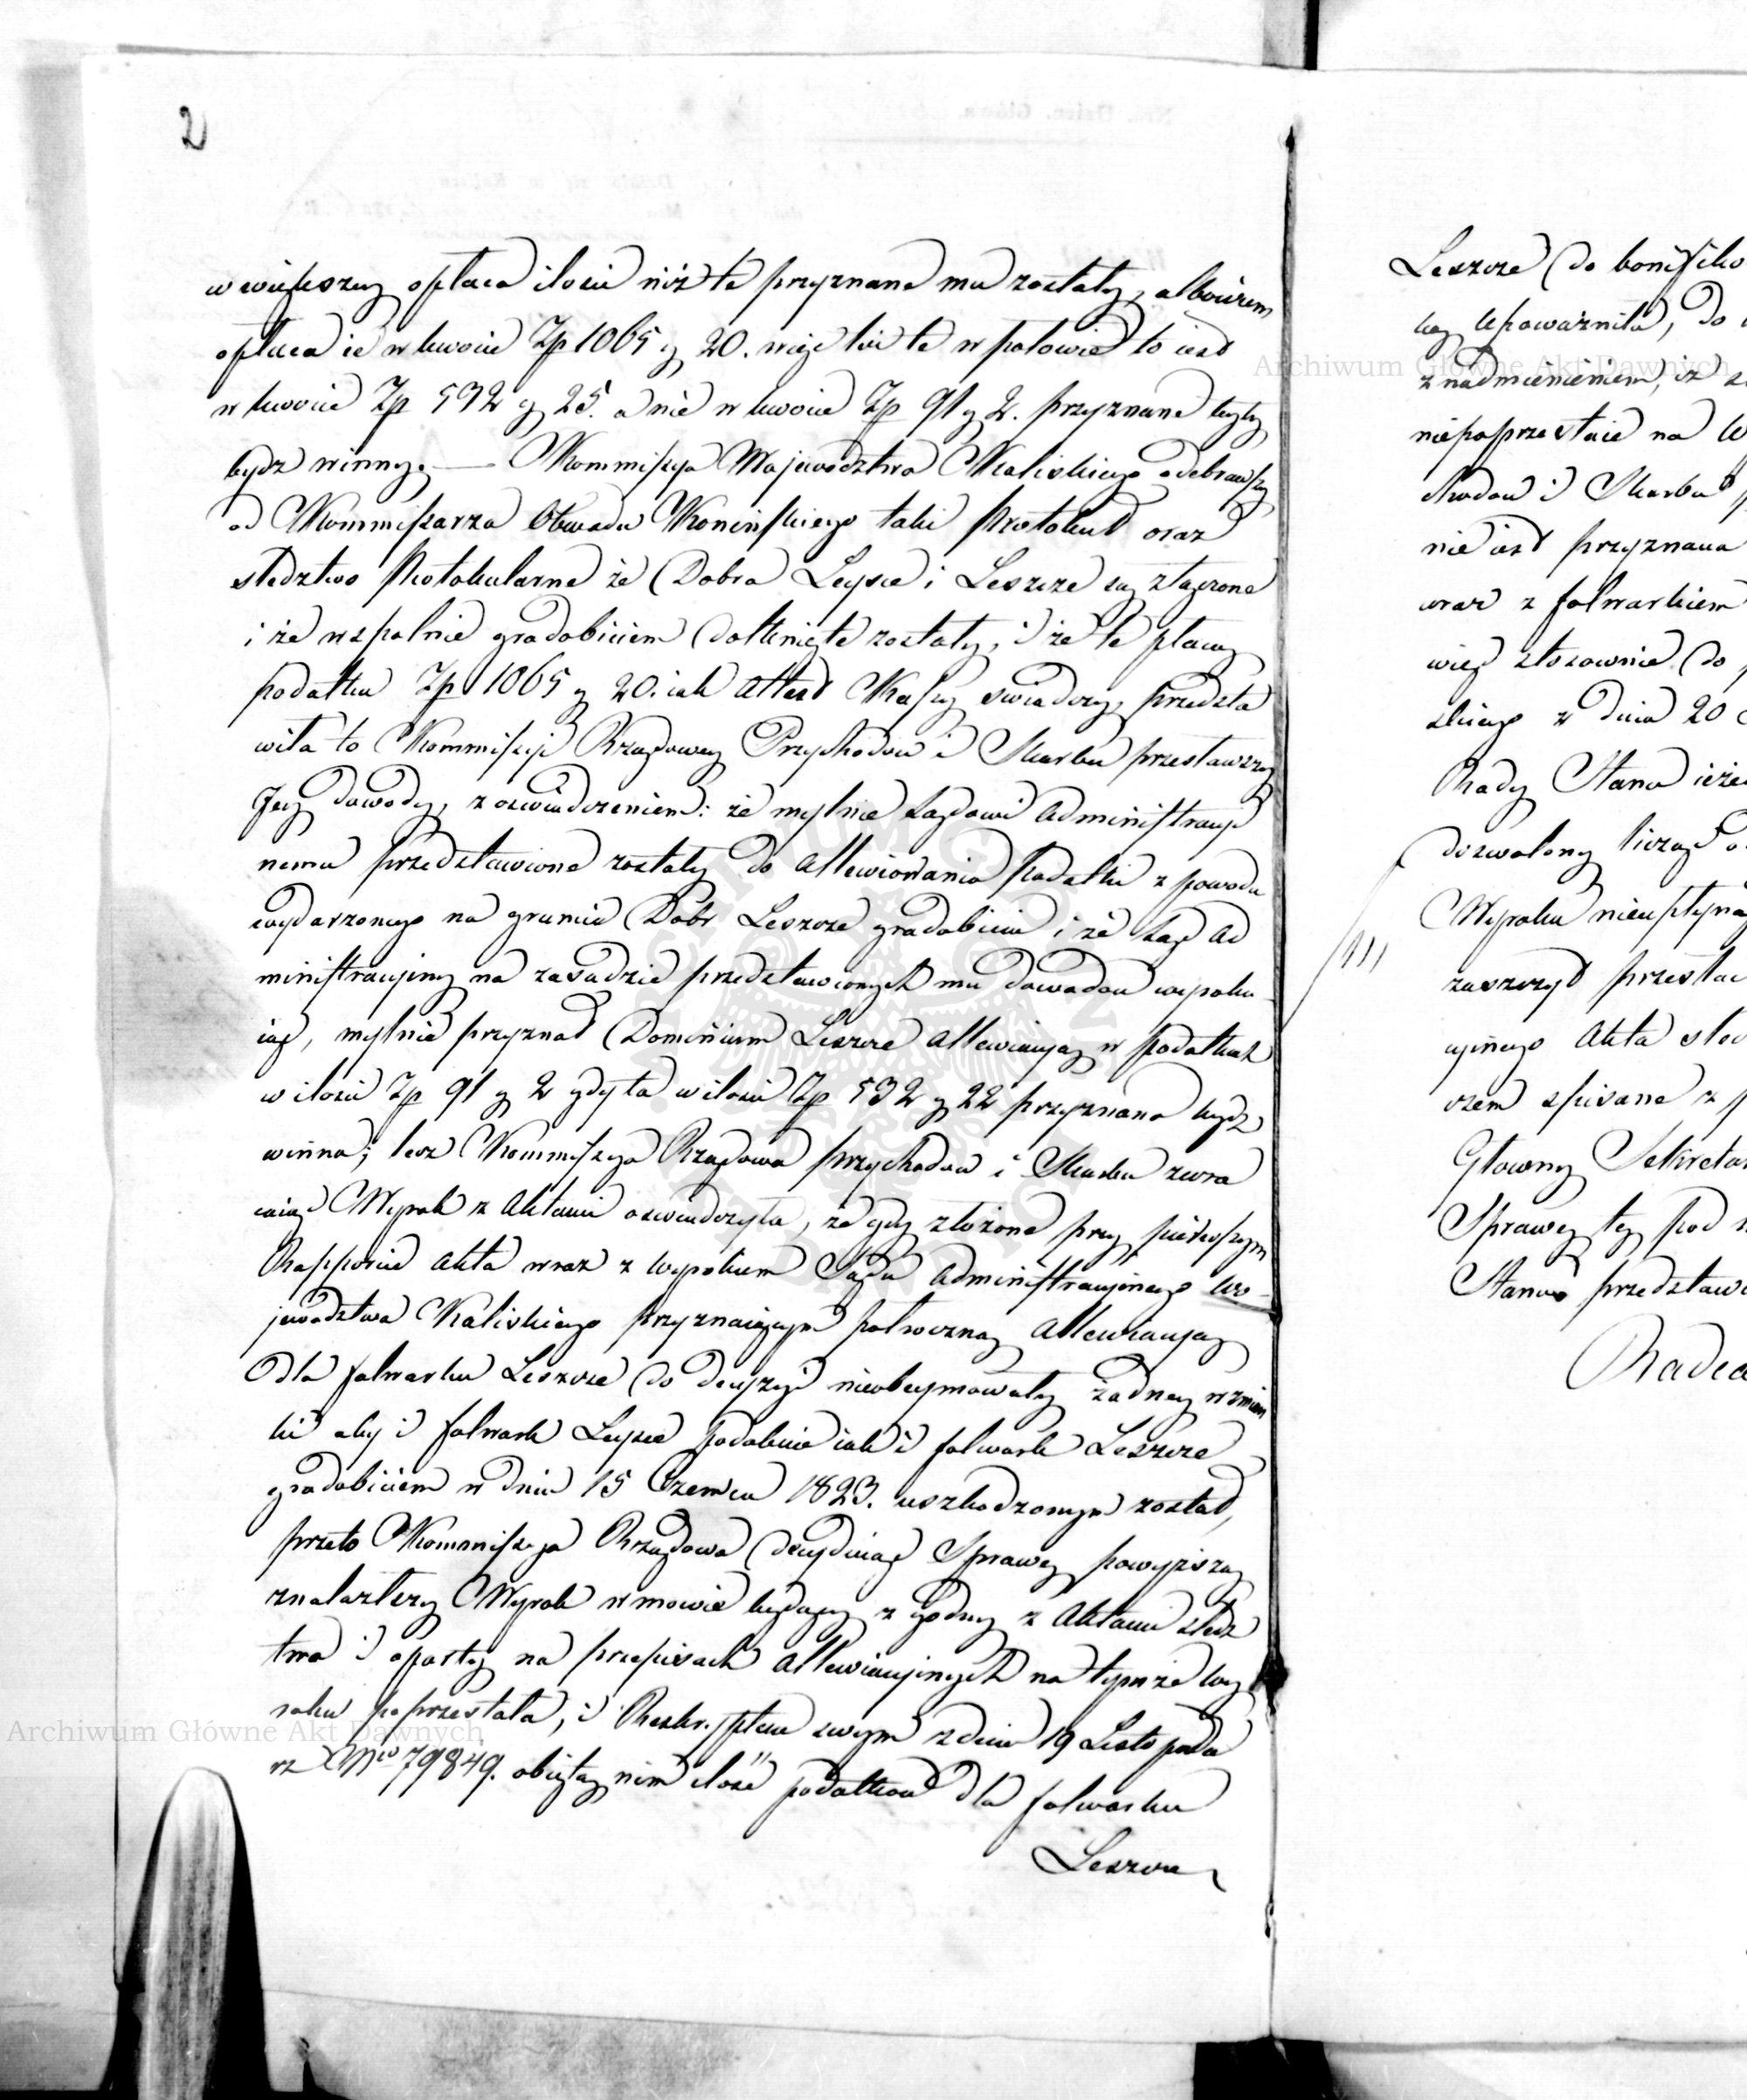 2
w większey opłaca ilości niż te przyznane mu zostały, albowiem
opłaca ie w kwocie Zp 1065 g 20. więc też te w połowie to iest
w kwocie Zp 532 g 25. a nie w kwocie Zp 91 g 2. przyznane
bydz winny. — Kommissya Wojewodztwa Kaliskiego odebrawszy
od Kommissarza Obwodu Konińskiego taki Protokuł oraz
sledztwo Protokularne że Dobra Leysce i Leszcze są złączone
i że wspolnie gradobiciem dotknięte zostały, i że te płacą
podatku Zp 1065 g 20. iak Attest Kassy swiadczy, przedsta
wiła to Kommissyi Rządowey Przychodow i Skarbu przesławszy
Jey dowody, z oswiadczeniem: że mylnie Sądowi Administracyi
nemu przedstawione zostały do allewiowania Podatki z powodu
wydarzonego na gruncie Dobr Leszcze gradobicia i że Sąd Ad
ministracyiny na zasadzie przedstawionych mu dowodow wyroku
iąc, mylnie przyznał Dominium Leszcze allewiacyą w podatkach
w ilości Zp 91 g 2 gdy ta w ilości Zp 532 g 22 przyznana bydz
winna; lecz Kommissya Rządowa przychodow i Skarbu zwra
caiąc Wyrok z Aktami oswiadczyła, że gdy złożone przy pierwszym
Rapporcie akta wraz z wyrokiem Sądu Administracyinego Wo-
jewodztwa Kaliskiego przyznaiącym połroczną allewiacyą
dla folwarku Leszcze do decyzyi nieobeymowały żadney wzmian
ki aby i folwark Leysce podobnie iak i folwark Leszcze
gradobiciem w dniu 15 Czerwca 1823. uszkodzonym został,
przeto Kommissya Rządowa decyduiąc Sprawę powyższą
znalazłszy Wyrok w mowie będący zgodny z Aktami sledz
twa i oparty na przepisach allewiacyinych na tymże wy
roku poprzestała, i Reskryptem swym z dnia 19 Listopada
rz Nro 79849. obiętą nim ilość podatkow dla folwarku
Leszcze
Leszcze do bonifiko
upoważniła, do
z nadmienieniem, iz
niepoprzestaie na W
chodow i Skarbu
nie iest przyznana
wraz z folwarkiem
więc stosownie do
skiego z dnia 20
Rady Stanu ieże
dozwolony licząc o
Wyroku nieupłyną
zaszczyt przesłać
cyinego Akta
rzem spisane z
Głowny Sekretar
Sprawę tę pod
Stanu przedstawi
Radca
Archiwum Główne Akt Dawnych
Archiwum Główne Akt Dawnych